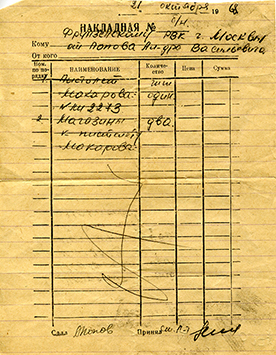 21 октября 1968
НАКЛАДНАЯ № б/н.
Кому Фрунзенскому РВК г. Москвы
От кого от Попова Ал-дра Васильевича
Ном. по порядку НАИМЕНОВАНИЕ Количество Цена Сумма
Пистолет
Макарова один.
2 Магазины два.
к пистолету
Макарова.
Сдал Попов Принял